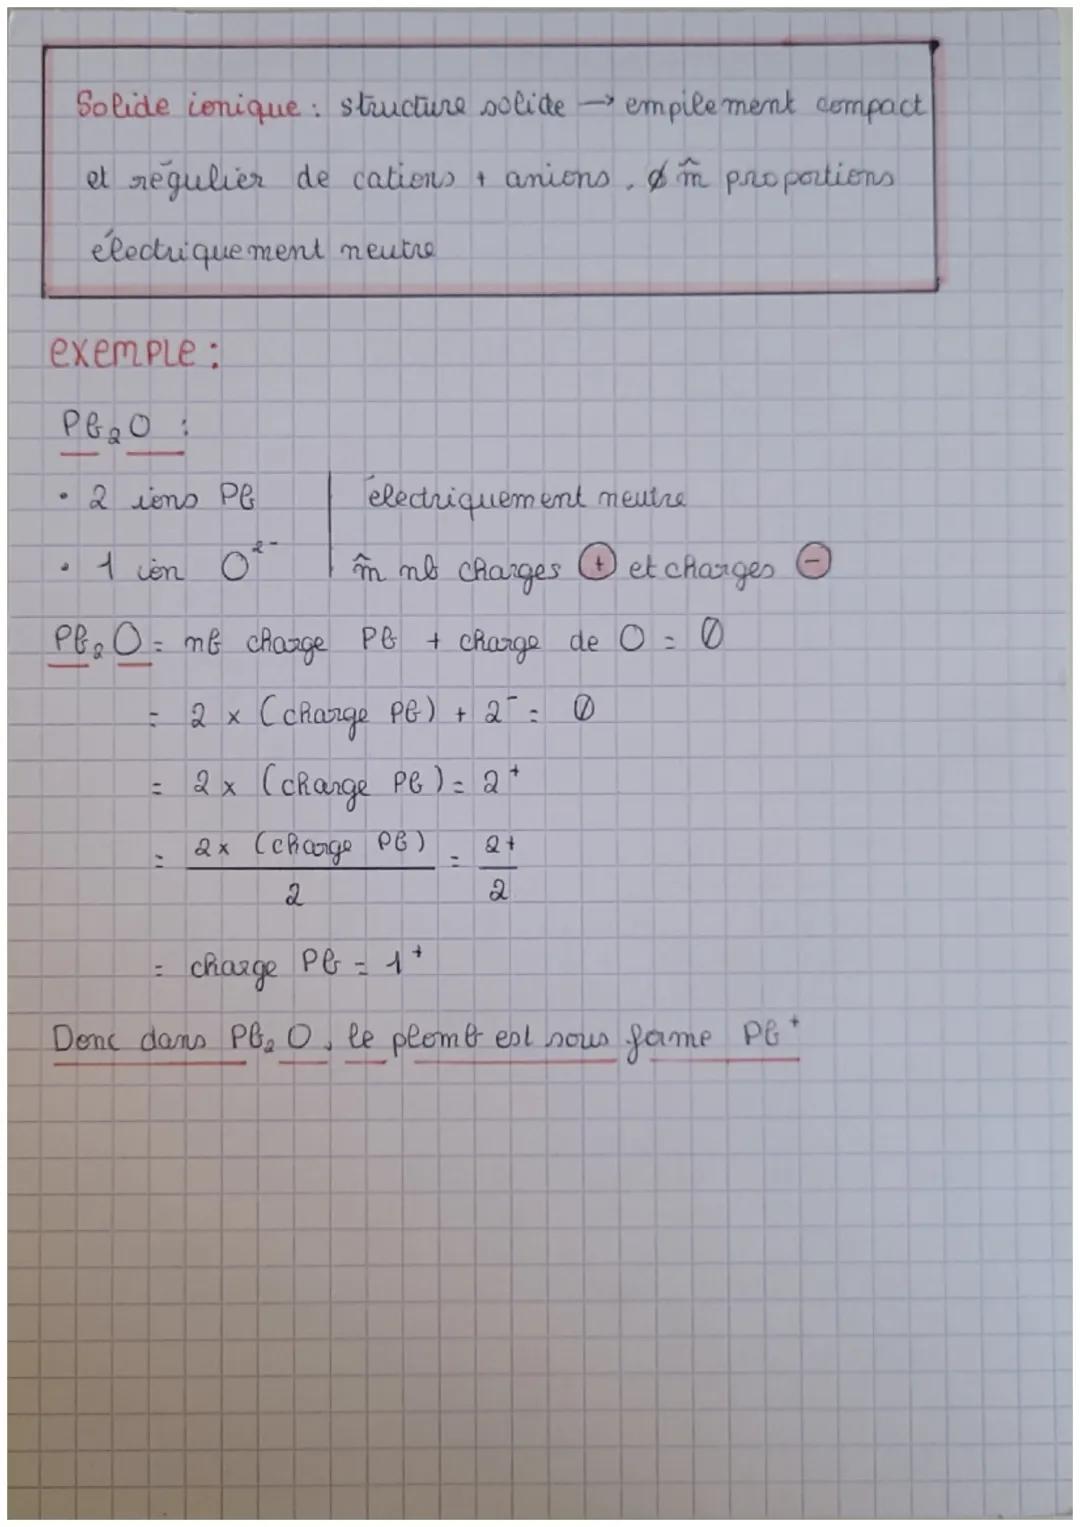 Solide ionique : structure solide → empilement compact
et régulier de cations + anions. ∅ m̂ proportions
électriquement neutre
exemple :
Pb₂O :
• 2 ions Pb | électriquement neutre
• 1 ion O²⁻ | m̂ nb charges ⊕ et charges ⊖
Pb₂O = nb charge Pb + charge de O = 0
= 2 x (charge Pb) + 2⁻ = 0
= 2 x (charge Pb) = 2⁺
= 2x (charge Pb) / 2 = 2+ / 2
= charge Pb = 1⁺
Donc dans Pb₂O, le plomb est sous forme Pb⁺